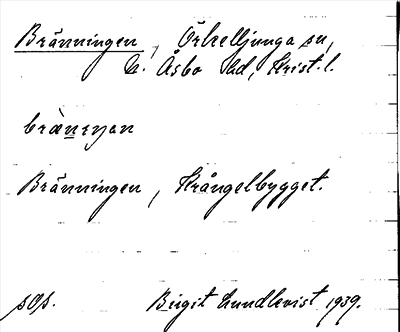 Bränningen, Örkelljunga sn,
N. Åsbo hd, Krist. l.
Bränningen, Krångelbygget.
Birgit Lundkvist 1939.